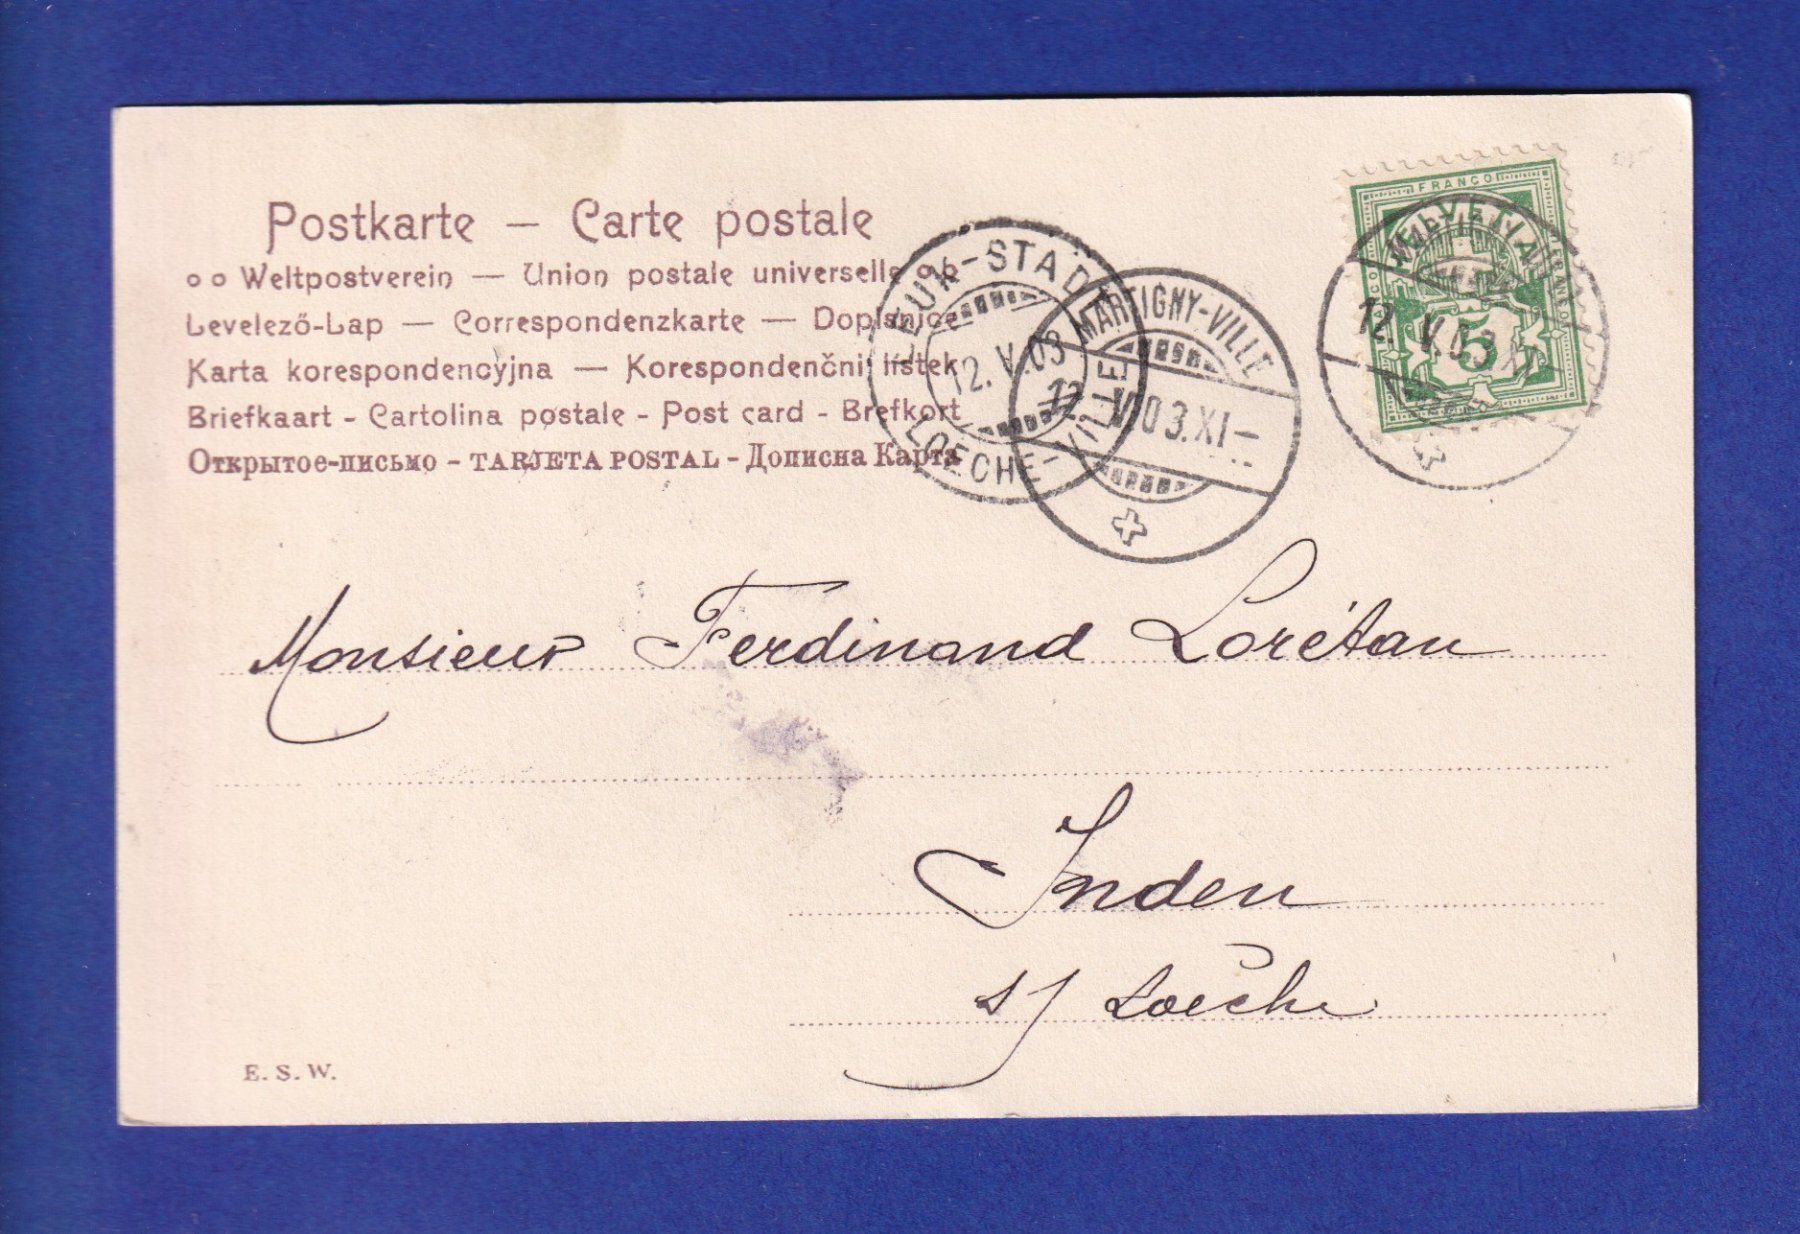 Postkarte — Carte postale
FRANCO
HELVETIA
5
12. V. 03. XI
o o Weltpostverein — Union postale universelle o o
Levelező-Lap — Correspondenzkarte — Dopisnice
Karta korespondencyjna — Korespondenčni lístek
Briefkaart - Cartolina postale - Post card - Brefkort
Открытое-письмо - TARJETA POSTAL - Дописна Карта
LEUK-STADT
12. V. 03
LOECHE-VILLE
MARTIGNY-VILLE
12. V. 03. XI —
Monsieur Ferdinand Lorétan
Inden
s/ Loèche
E. S. W.